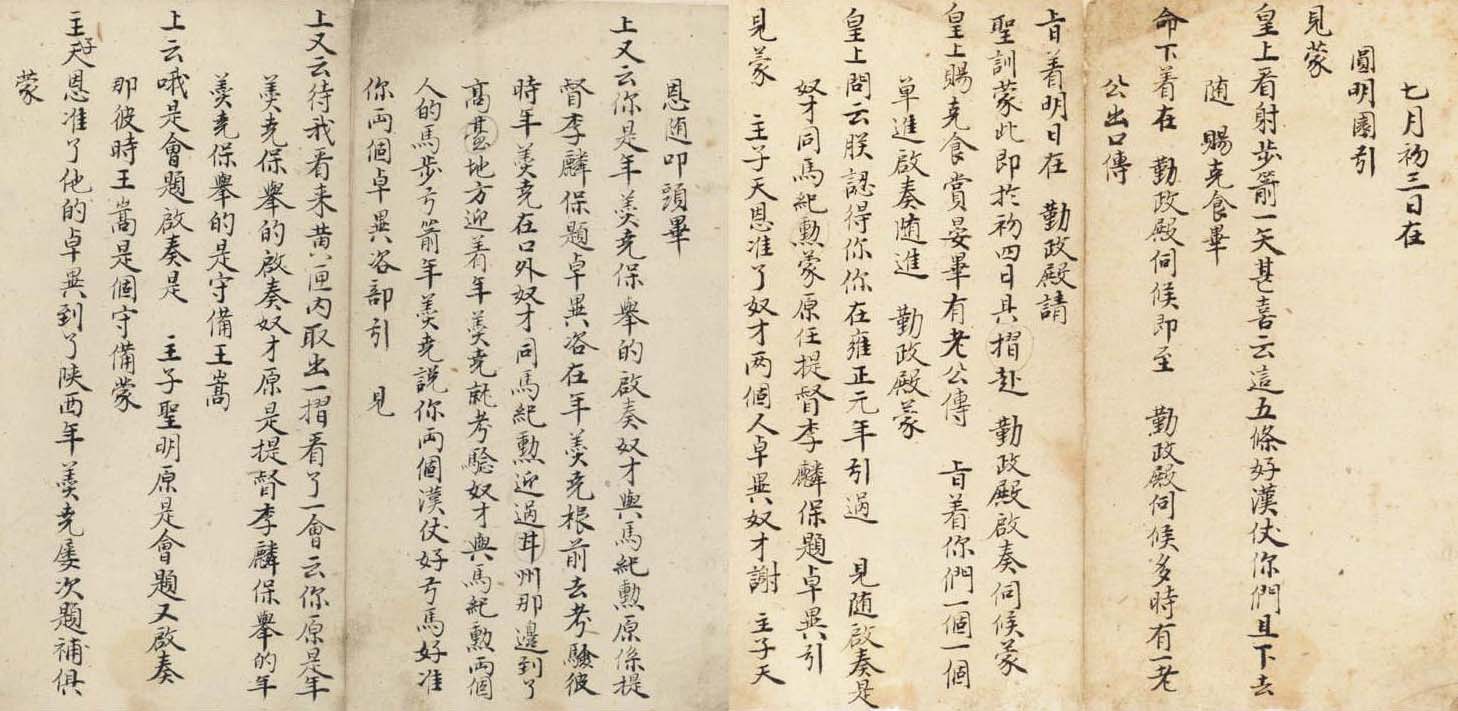 七月初三日在
圓明園引
見蒙
皇上看射步箭一矢甚喜云這五條好漢仗你們且下去
隨 賜克食畢
命下着在 勤政殿伺候即至 勤政殿伺候多時有一老
公出口傳
旨着明日在 勤政殿請
聖訓蒙此即於初四日具摺赴 勤政殿啟奏伺候蒙
皇上賜克食賞晏畢有老公傳 旨着你們一個一個
单進啟奏随進 勤政殿蒙
皇上問云朕認得你你在雍正元年引過 見随啟奏是
奴才同馬紀勲蒙原任提督李麟保題卓異引
見蒙 主子天恩准了奴才两個人卓異奴才謝 主子天
恩随叩頭畢
上又云你是年羹尭保舉的啟奏奴才與馬紀勲原係提
督李麟保題卓異咨在年羹尭根前去考驗彼
時年羹尭在口外奴才同馬紀勲迎過甘州那邊到了
高臺地方迎着年羹尭就考驗奴才與馬紀勲两個
人的馬步弓箭年羹尭説你两個漢仗好弓馬好准
你两個卓異咨部引 見
上又云待我看来黄匣内取出一摺看了一會云你原是年
羹尭保舉的啟奏奴才原是提督李麟保舉的年
羹尭保舉的是守備王嵩
上云哦是會題啟奏是 主子聖明原是會題又啟奏
那彼時王嵩是個守備蒙
主子天恩准了他的卓異到了陝西年羹尭屡次題補俱
蒙